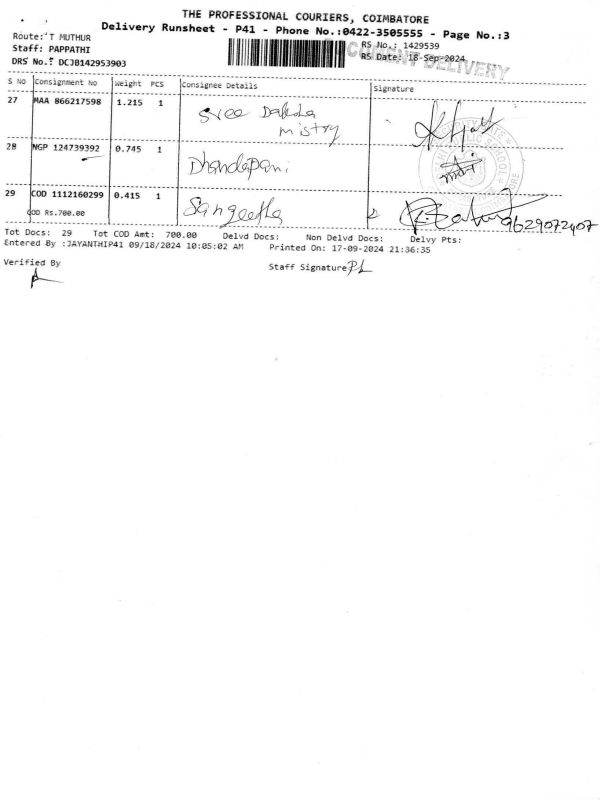 THE PROFESSIONAL COURIERS, COIMBATORE
Delivery Runsheet - P41 - Phone No.:0422-3505555 - Page No.:3
Route: T MUTHUR
RS No.: 1429539
Staff: PAPPATHI
RS Date: 18-Sep-2024
DRS No.: DCJB142953903
DELIVERY
S No Consignment No Weight PCS Consignee Details Signature
27 MAA 866217598 1.215 1 Sree
mistry
28 NGP 124739392 0.745 1 Dhandapani
29 COD 1112160299 0.415 1 Sangeetha
9629072407
COD Rs.700.00
Tot Docs: 29 Tot COD Amt: 700.00 Delvd Docs: Non Delvd Docs: Delvy Pts:
Entered By :JAYANTHIP41 09/18/2024 10:05:02 AM Printed On: 17-09-2024 21:36:35
Verified By
Staff Signature